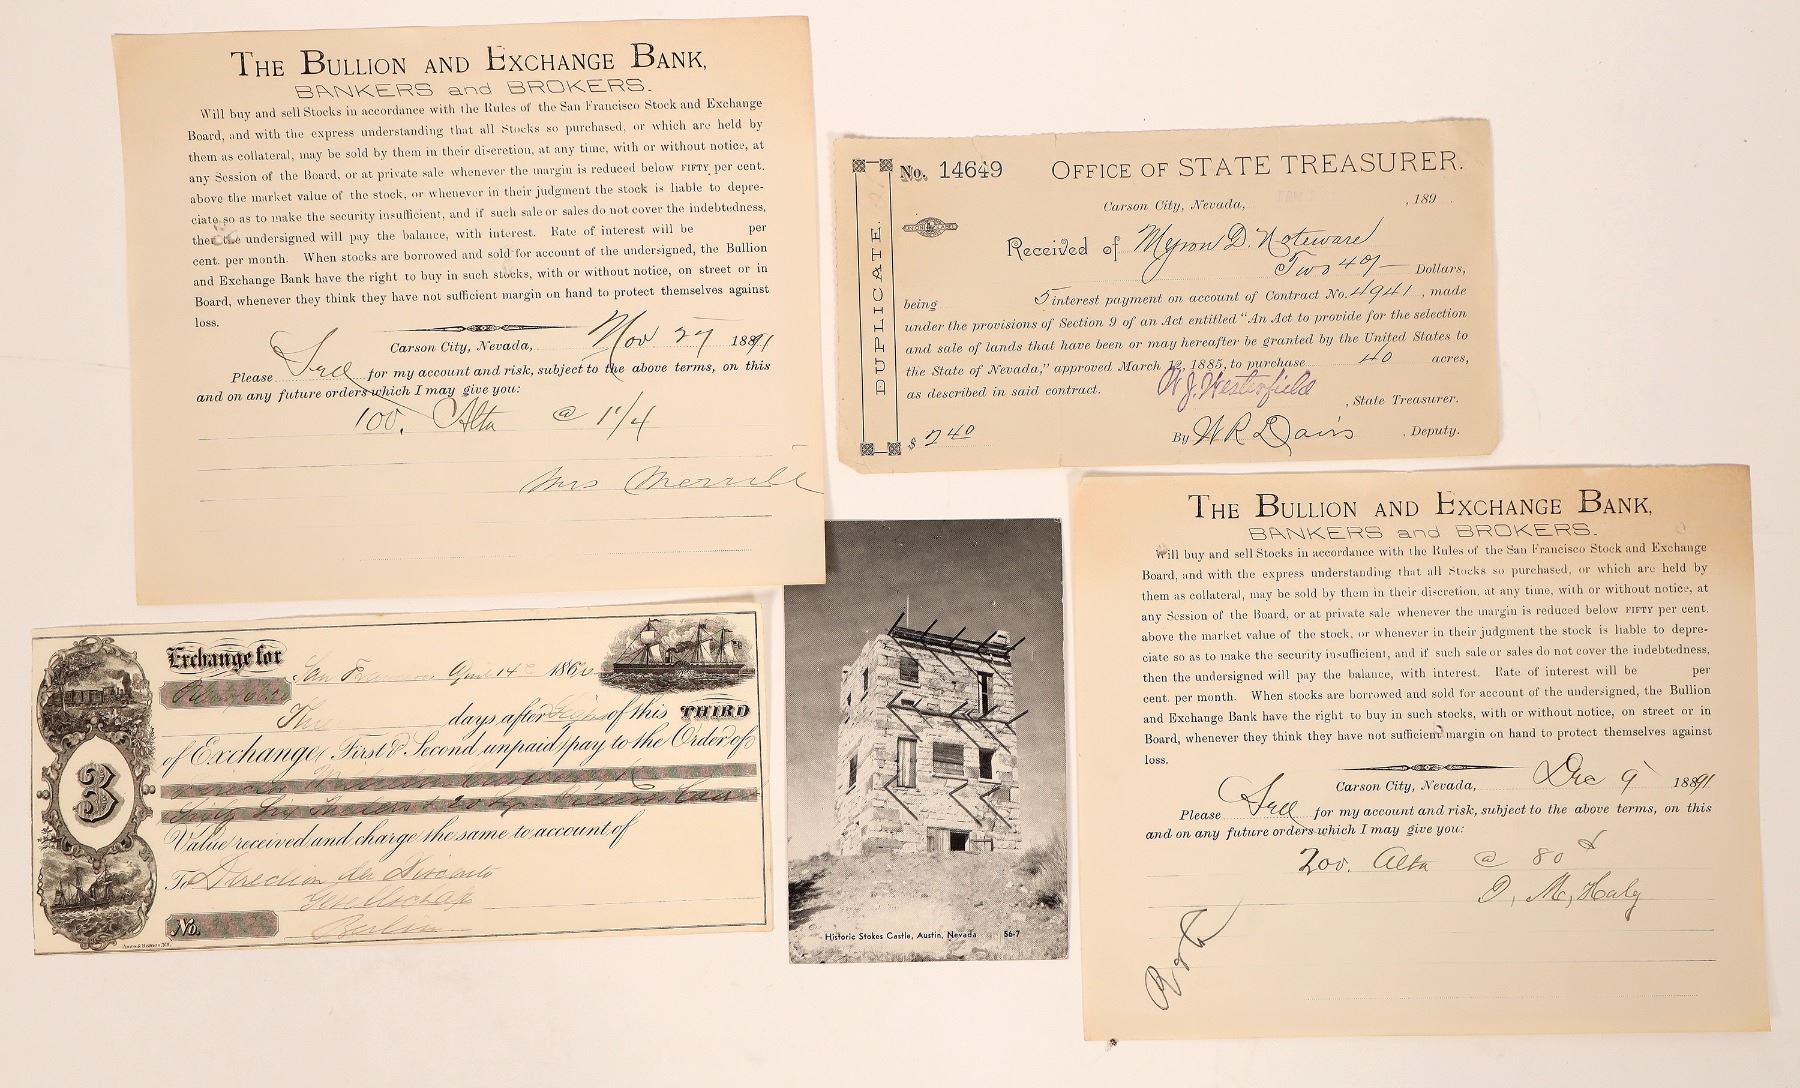 THE BULLION AND EXCHANGE BANK,
BANKERS and BROKERS.
Will buy and sell Stocks in accordance with the Rules of the San Francisco Stock and Exchange
Board, and with the express understanding that all Stocks so purchased, or which are held by
them as collateral, may be sold by them in their discretion, at any time, with or without notice, at
any Session of the Board, or at private sale whenever the margin is reduced below FIFTY per cent.
above the market value of the stock, or whenever in their judgment the stock is liable to depre-
ciate so as to make the security insufficient, and if such sale or sales do not cover the indebtedness,
then the undersigned will pay the balance, with interest. Rate of interest will be per
cent. per month. When stocks are borrowed and sold for account of the undersigned, the Bullion
and Exchange Bank have the right to buy in such stocks, with or without notice, on street or in
Board, whenever they think they have not sufficient margin on hand to protect themselves against
loss.
Carson City, Nevada, Nov 27 1891
Please Sell for my account and risk, subject to the above terms, on this
and on any future orders which I may give you:
100. Alta @ 1 1/4
Mrs Merrill
No. 14649 OFFICE OF STATE TREASURER.
DUPLICATE.
Carson City, Nevada, , 189
Received of Myron D. Noteware
Two 40/ Dollars,
being 5 interest payment on account of Contract No. 4941, made
under the provisions of Section 9 of an Act entitled "An Act to provide for the selection
and sale of lands that have been or may hereafter be granted by the United States to
the State of Nevada," approved March 12, 1885, to purchase 40 acres,
as described in said contract.
W. J. Westerfield
, State Treasurer.
$ 2 40 By W R Davis , Deputy.
Exchange for
San Francisco April 14 186
Three days after Sight of this THIRD
of Exchange, First & Second unpaid, pay to the Order of
Value received and charge the same to account of
3
To Direction der Disconto
Gesellschaft
Berlin
No.
Historic Stokes Castle, Austin, Nevada 56-7
THE BULLION AND EXCHANGE BANK,
BANKERS and BROKERS.
Will buy and sell Stocks in accordance with the Rules of the San Francisco Stock and Exchange
Board, and with the express understanding that all Stocks so purchased, or which are held by
them as collateral, may be sold by them in their discretion, at any time, with or without notice, at
any Session of the Board, or at private sale whenever the margin is reduced below FIFTY per cent.
above the market value of the stock, or whenever in their judgment the stock is liable to depre-
ciate so as to make the security insufficient, and if such sale or sales do not cover the indebtedness,
then the undersigned will pay the balance, with interest. Rate of interest will be per
cent. per month. When stocks are borrowed and sold for account of the undersigned, the Bullion
and Exchange Bank have the right to buy in such stocks, with or without notice, on street or in
Board, whenever they think they have not sufficient margin on hand to protect themselves against
loss.
Carson City, Nevada, Dec 9 1891
Please Sell for my account and risk, subject to the above terms, on this
and on any future orders which I may give you:
200. Alta @ 80